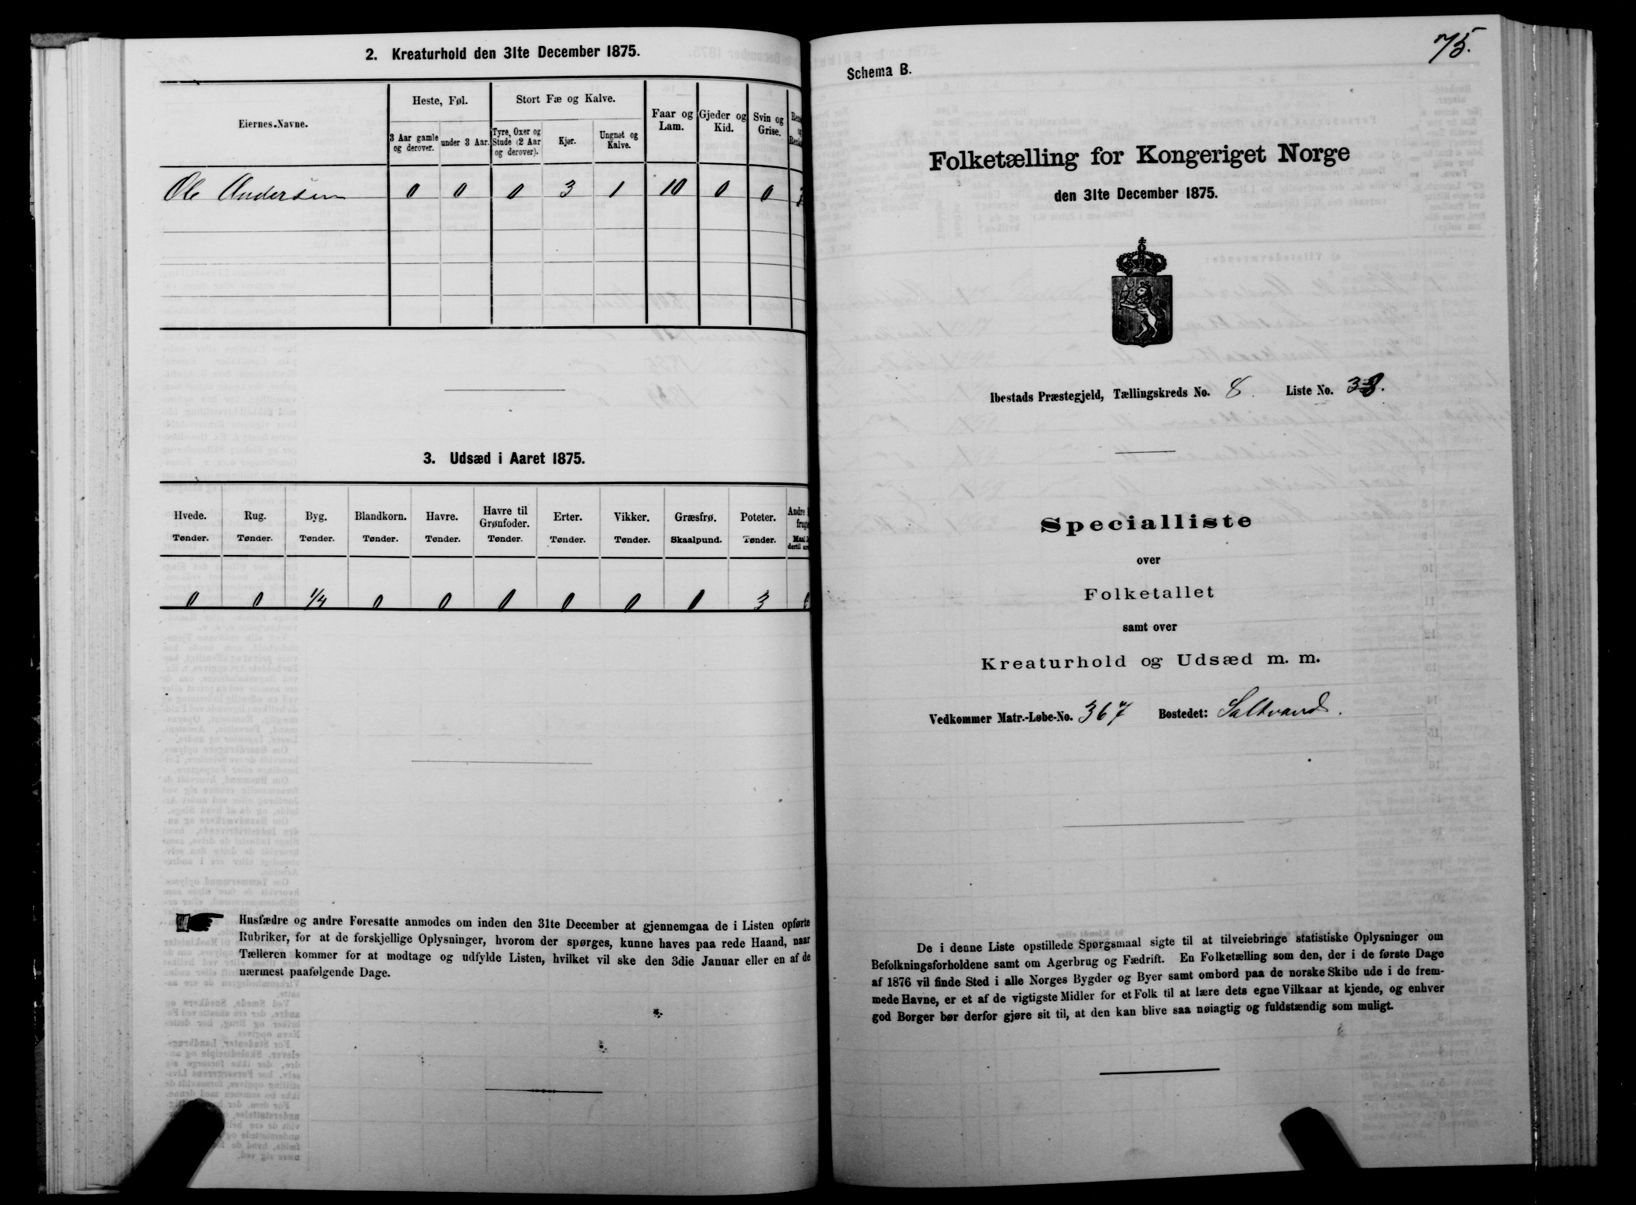 2. Kreaturhold den 31te December 1875.
Eiernes Navne.
Heste, Føl.
Stort Fæ og Kalve.
Faar og Lam.
Gjeder og Kid.
Svin og Grise.
3 Aar gamle og derover.
under 3 Aar.
Tyre, Oxer og Stude (2 Aar og derover).
Kjør.
Ungnøt og Kalve.
Ole Andersen 0 0 0 3 1 10 0 0
3. Udsæd i Aaret 1875.
Hvede. Rug. Byg. Blandkorn. Havre. Havre til Grønfoder. Erter. Vikker. Græsfrø. Poteter. Andre
Tønder. Tønder. Tønder. Tønder. Tønder. Tønder. Tønder. Tønder. Skaalpund. Tønder.
0 0 1/4 0 0 0 0 0 0 3
Husfædre og andre Foresatte anmodes om inden den 31te December at gjennemgaa de i Listen opførte
Rubriker, for at de forskjellige Oplysninger, hvorom der spørges, kunne haves paa rede Haand, naar
Tælleren kommer for at modtage og udfylde Listen, hvilket vil ske den 3die Januar eller en af de
nærmest paafølgende Dage.
75.
Schema B.
Folketælling for Kongeriget Norge
den 31te December 1875.
Ibestads Præstegjeld, Tællingskreds No. 8. Liste No.
Specialliste
over
Folketallet
samt over
Kreaturhold og Udsæd m. m.
Vedkommer Matr.-Løbe-No. 367 Bostedet: Saltvand.
De i denne Liste opstillede Spørgsmaal sigte til at tilveiebringe statistiske Oplysninger om
Befolkningsforholdene samt om Agerbrug og Fædrift. En Folketælling som den, der i de første Dage
af 1876 vil finde Sted i alle Norges Bygder og Byer samt ombord paa de norske Skibe ude i de frem-
mede Havne, er et af de vigtigste Midler for et Folk til at lære dets egne Vilkaar at kjende, og enhver
god Borger bør derfor gjøre sit til, at den kan blive saa nøiagtig og fuldstændig som muligt.